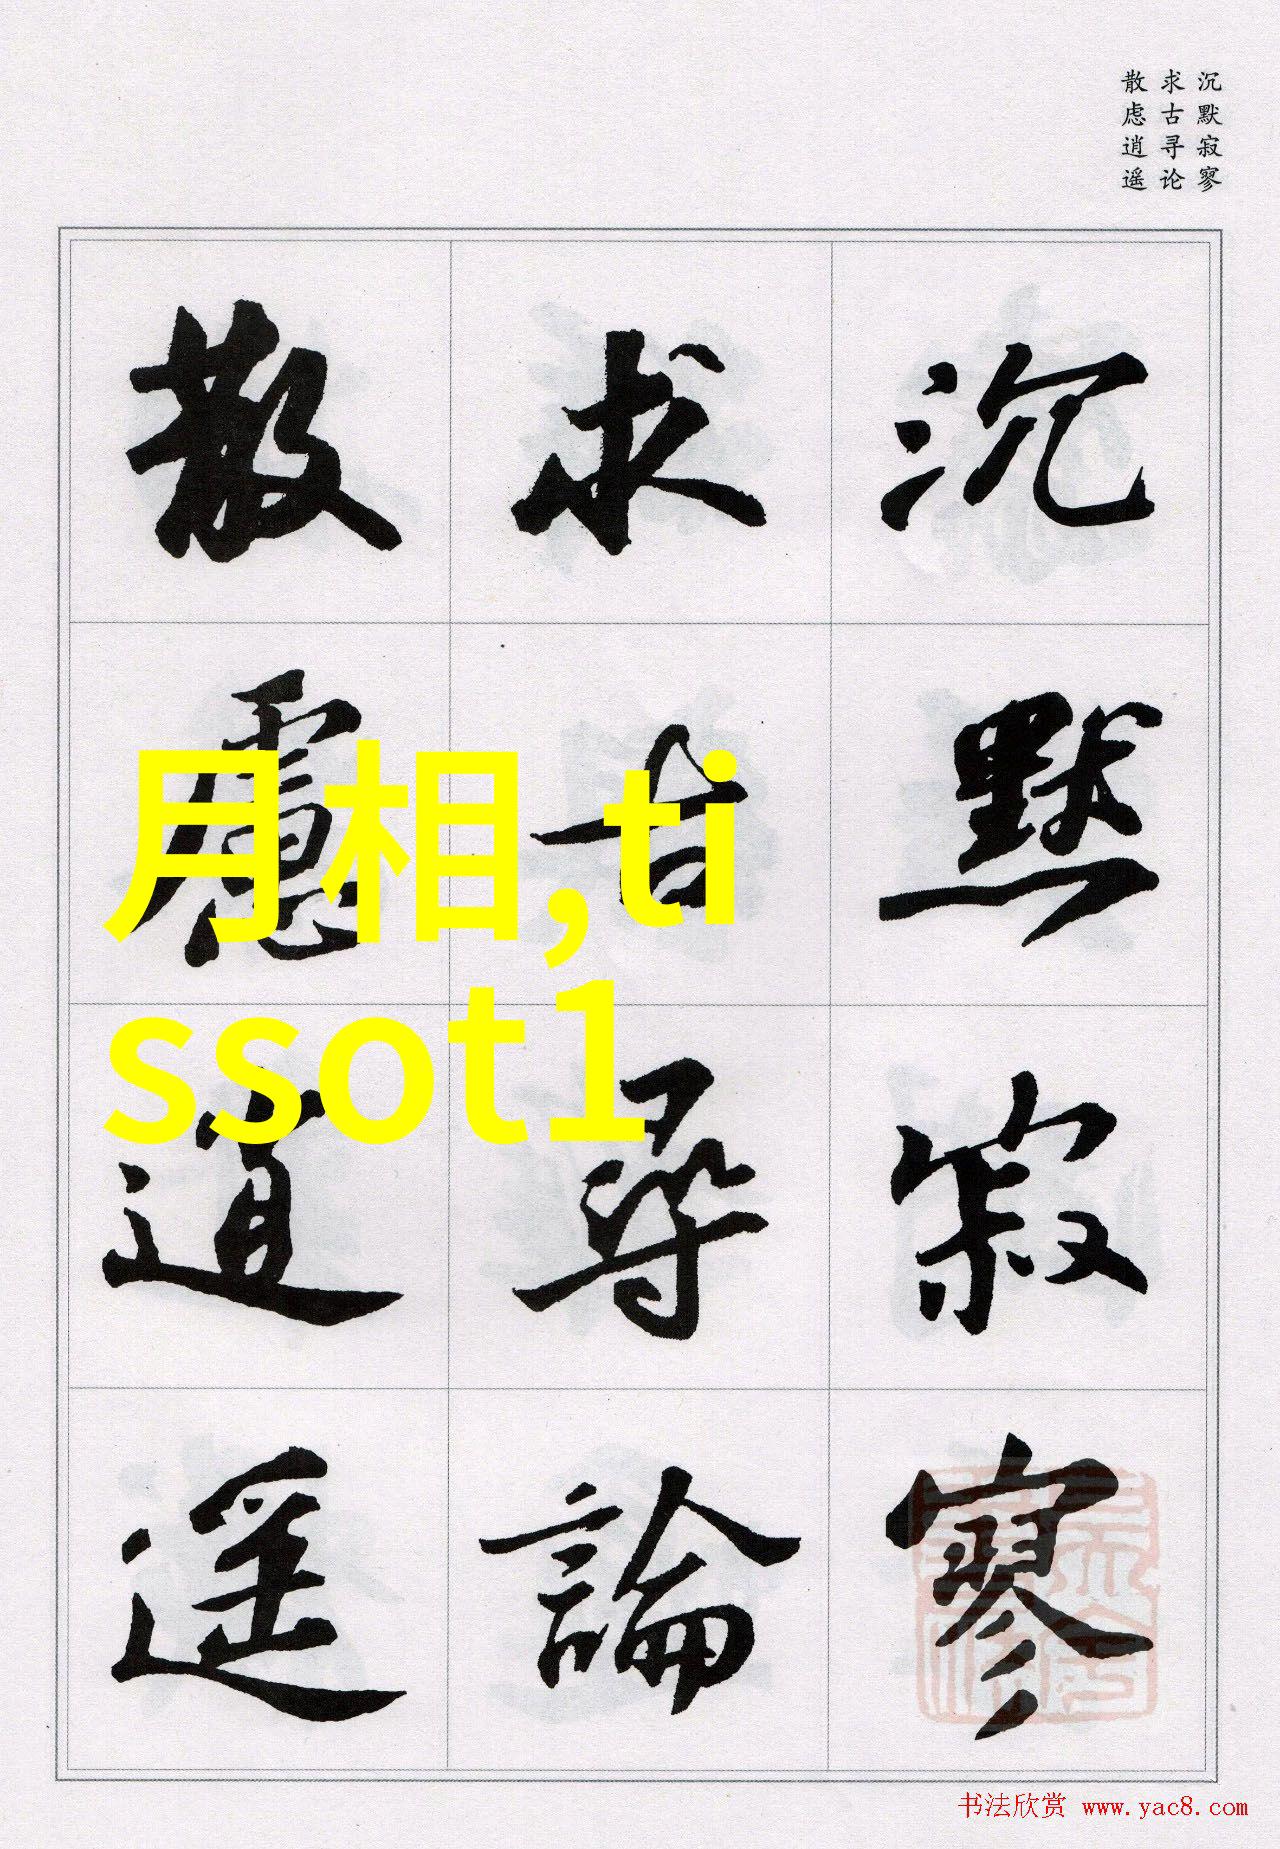 沉默寂寥
求古寻论
散虑逍遥
沉默寂寥
求古尋論
散慮逍遥
月相,ti
ssot1
书法欣赏 www.yac8.com